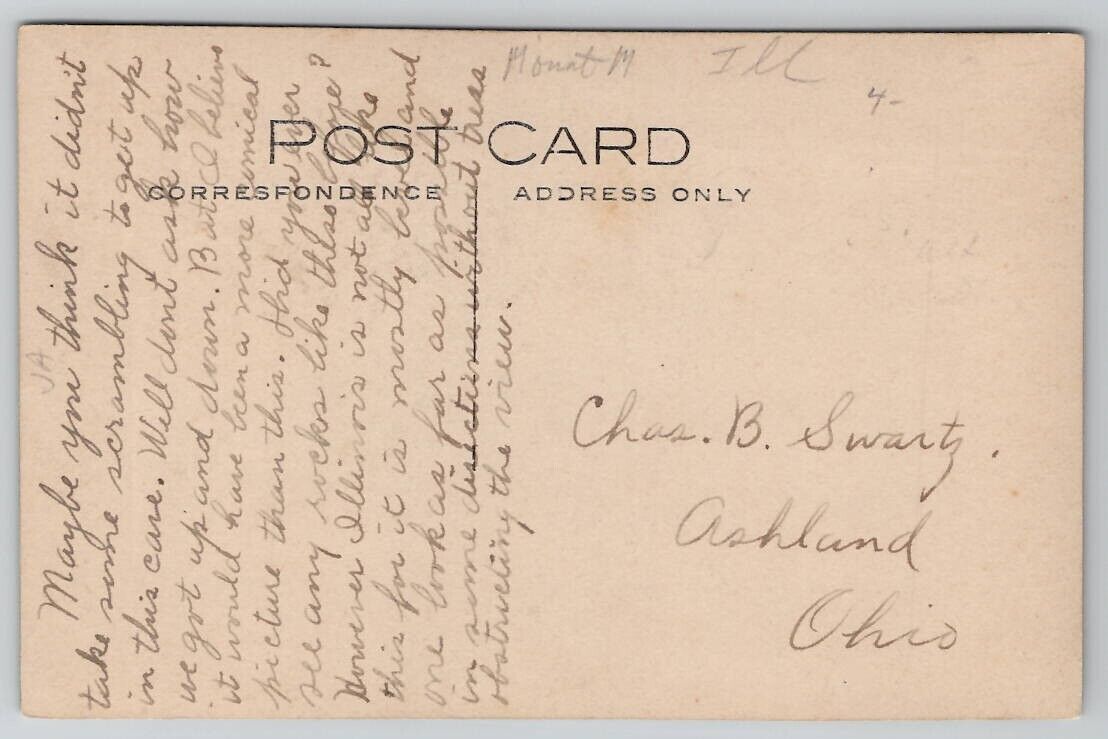 Mount M Ill
4-
POST CARD
CORRESPONDENCE ADDRESS ONLY
Maybe you think it didn't
take some scrambling to get up
in this cave. Well dont ask how
we got up and down. But I believe
it would have been a more comical
picture than this. Did you ever
see any rocks like these before?
However Illinois is not all like
this for it is mostly level and
one look as far as possible
in some directions without trees
obstructing the view.
JA
Chas. B. Swartz.
Ashland
Ohio